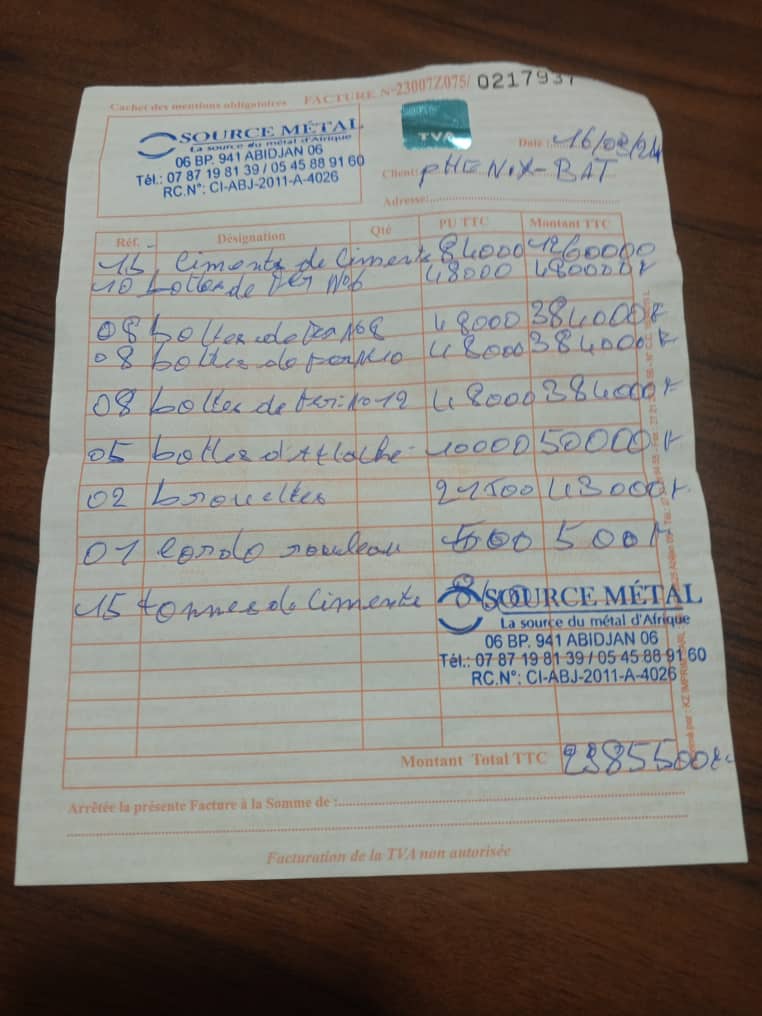 Cachet des mentions obligatoires FACTURE N°23007Z075/ 0217937
SOURCE MÉTAL
La source du métal d'Afrique
06 BP. 941 ABIDJAN 06
Tél.: 07 87 19 81 39 / 05 45 88 91 60
RC.N°: CI-ABJ-2011-A-4026
TVA
Date : 16/02/24
Client: PHENIX-BAT
Adresse:
Réf. Désignation Qté PU TTC Montant TTC
15 Ciments de Ciment 84000 1260000
10 bottes de fer No6 48000 480000F
08 bottes de fer No8 48000 384000F
08 bottes de fer No10 48000 384000F
08 bottes de fer No12 48000 384000F
05 bottes d'Attache 10000 50000F
02 brouettes 21500 43000F
01 Cordo rouleau 500 500F
15 tonnes de Cimente
SOURCE MÉTAL
La source du métal d'Afrique
06 BP. 941 ABIDJAN 06
Tél.: 07 87 19 81 39 / 05 45 88 91 60
RC.N°: CI-ABJ-2011-A-4026
Montant Total TTC 2985500F
Arrêtée la présente Facture à la Somme de :
Facturation de la TVA non autorisée